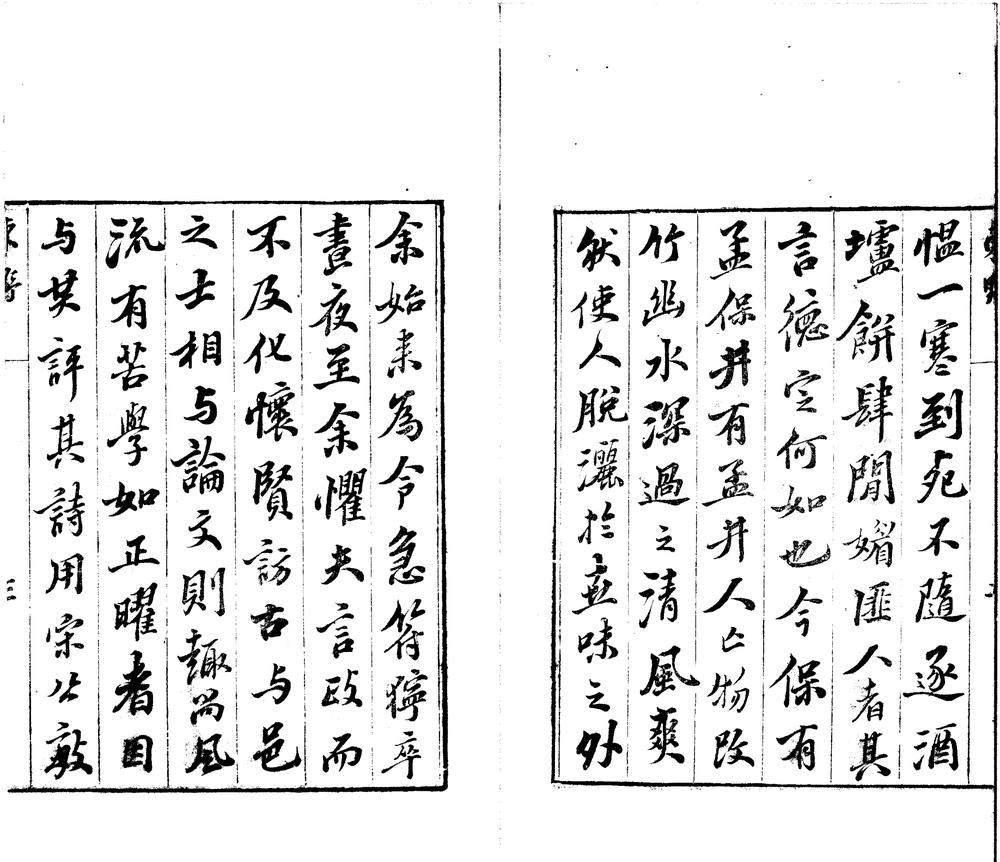 愠一寒到死不隨逐酒
壚餅肆閒媚匪人者其
言德定何如也今保有
孟保井有孟井人亡物改
竹幽水深過之清風爽
然使人脫灑於味之外
余始来為令急符獰卒
晝夜至余懼夫言政而
不及化懷賢訪古与邑
之士相与論文則趣尚風
流有苦學如正曜者因
与共評其詩用宋公敦